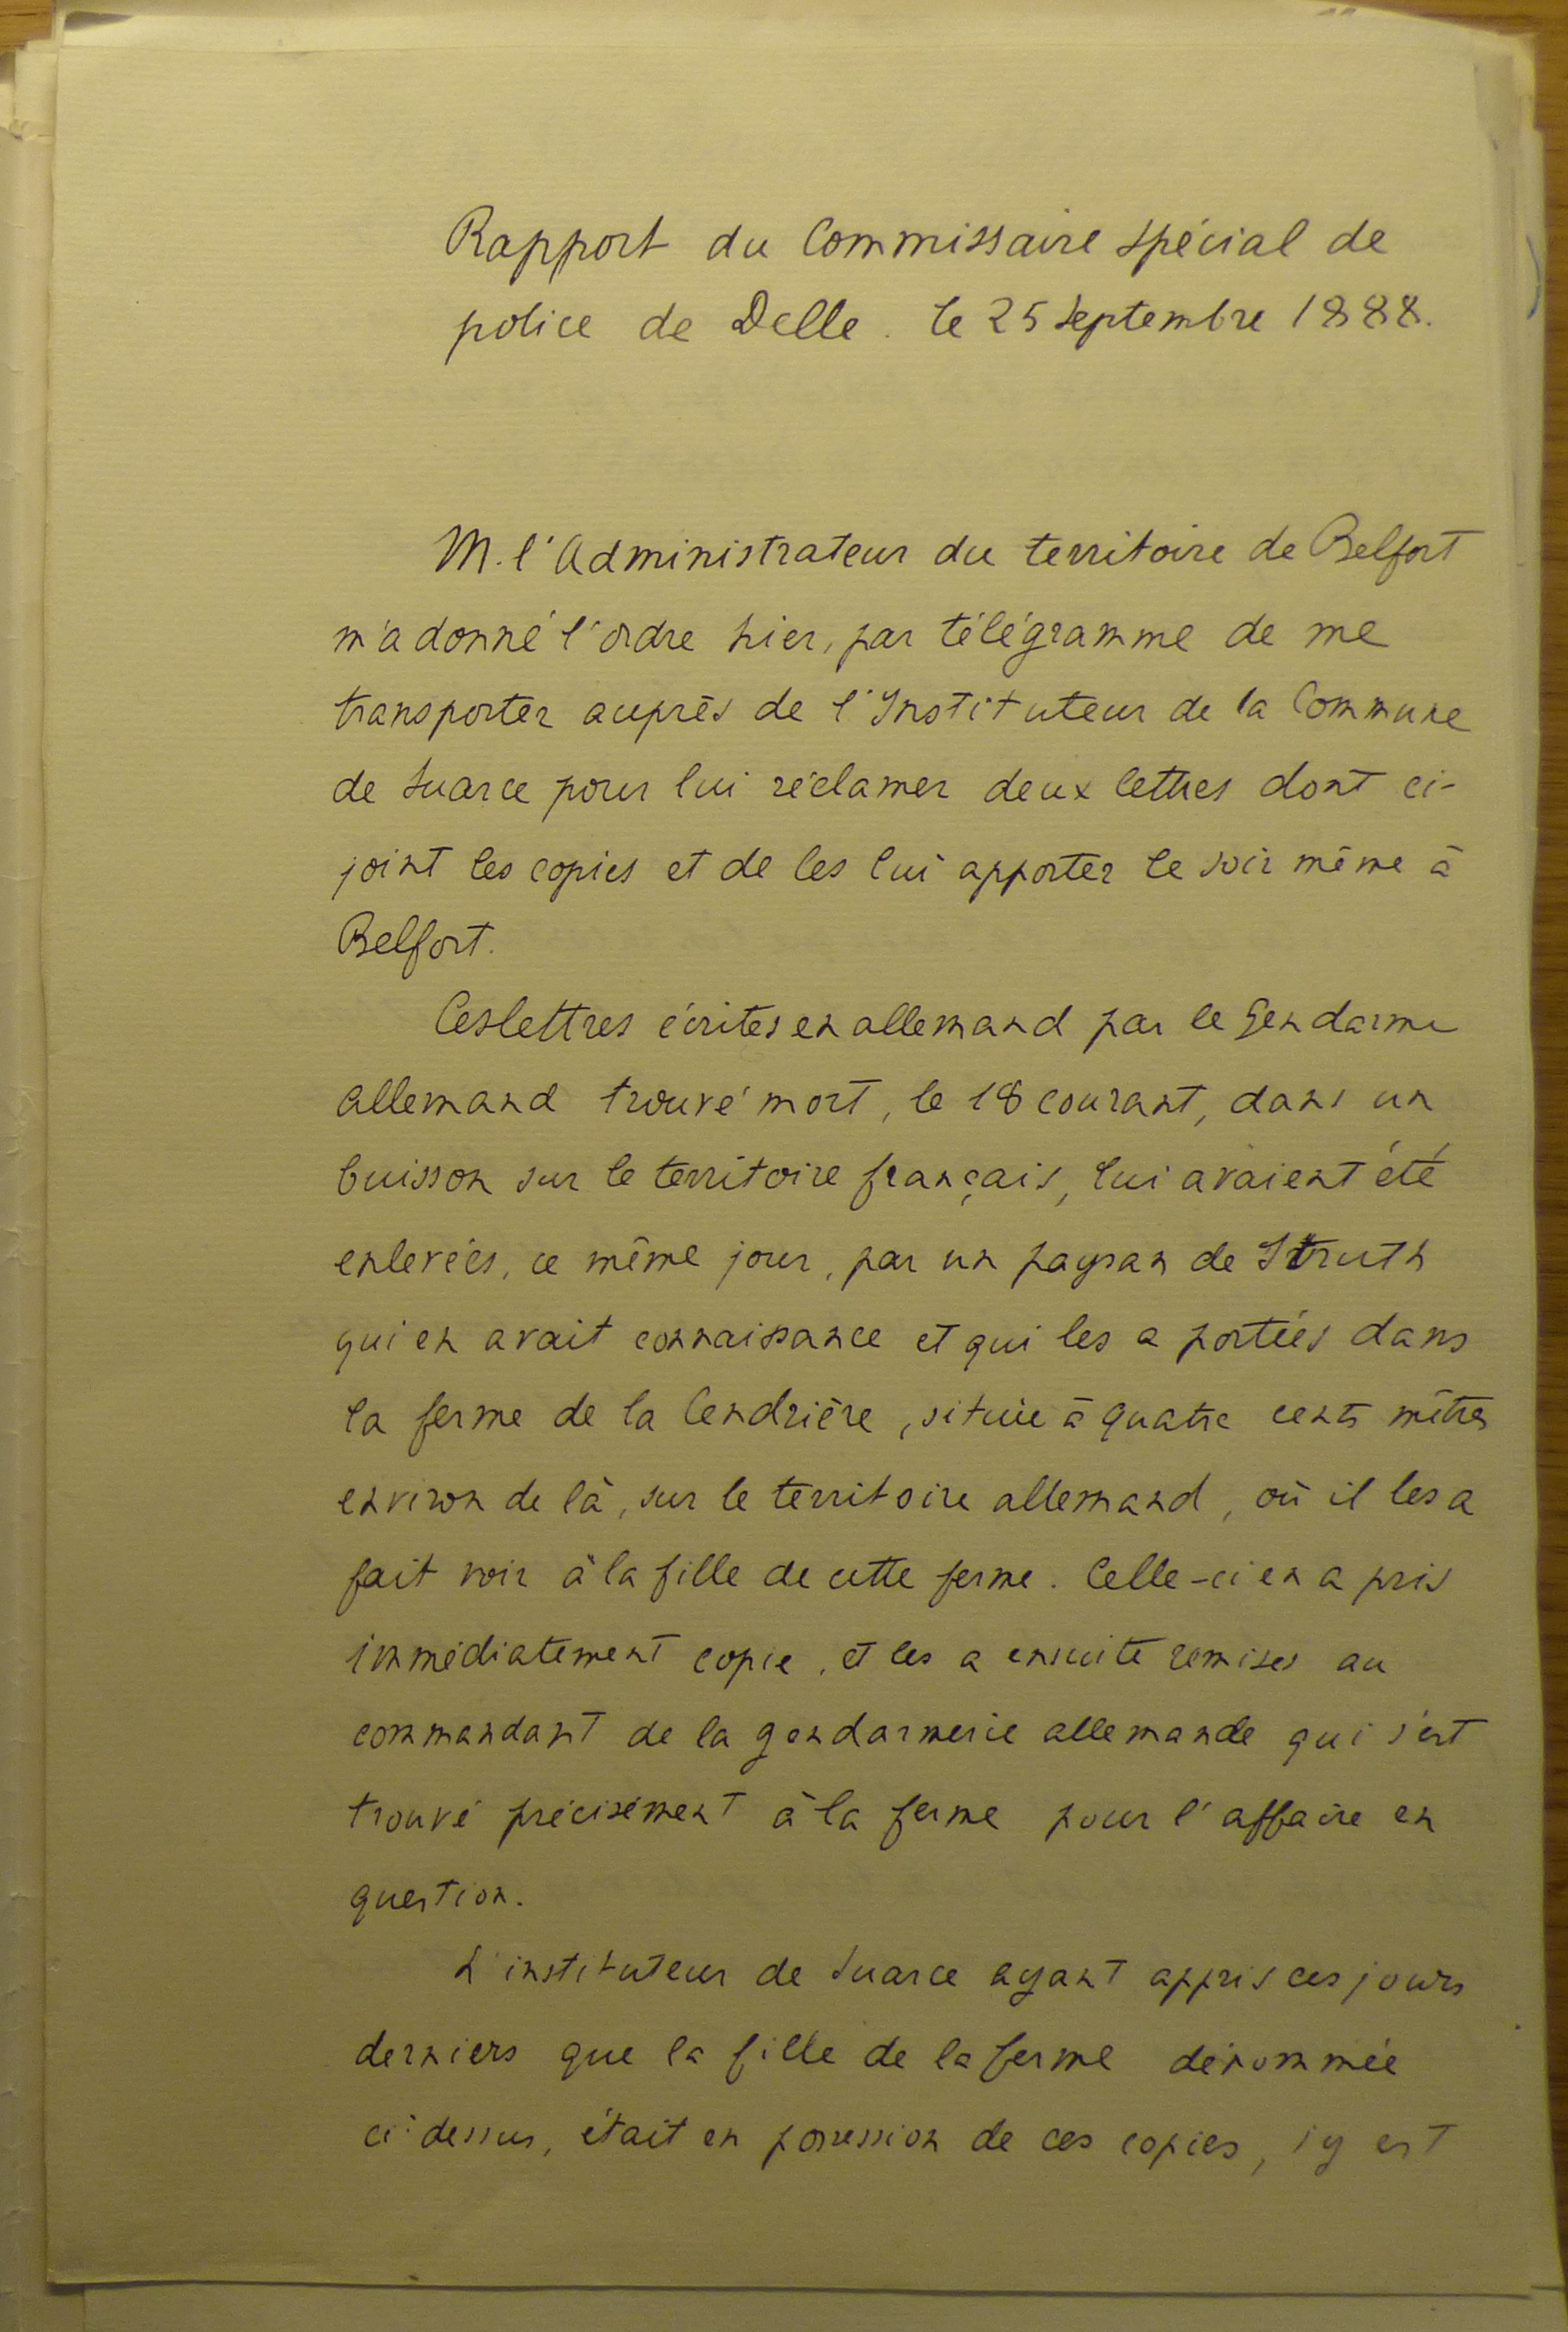 Rapport du Commissaire spécial de
police de Delle. le 25 Septembre 1888.
M. l'Administrateur du territoire de Belfort
m'a donné l'ordre hier, par télégramme de me
transporter auprès de l'Instituteur de la Commune
de Suarce pour lui réclamer deux lettres dont ci-
joint les copies et de les lui apporter le soir même à
Belfort.
Ces lettres écrites en allemand par le Gendarme
allemand trouvé mort, le 18 courant, dans un
buisson sur le territoire français, lui avaient été
enlevées, ce même jour, par un paysan de Struth
qui en avait connaissance et qui les a portées dans
la ferme de la Cendrière, située à quatre cents mètres
environ de là, sur le territoire allemand, où il les a
fait voir à la fille de cette ferme. Celle-ci en a pris
immédiatement copie, et les a ensuite remises au
commandant de la gendarmerie allemande qui s'est
trouvé précisément à la ferme pour l'affaire en
question.
L'instituteur de Suarce ayant appris ces jours
derniers que la fille de la ferme dénommée
ci-dessus, était en possession de ces copies, s'y est